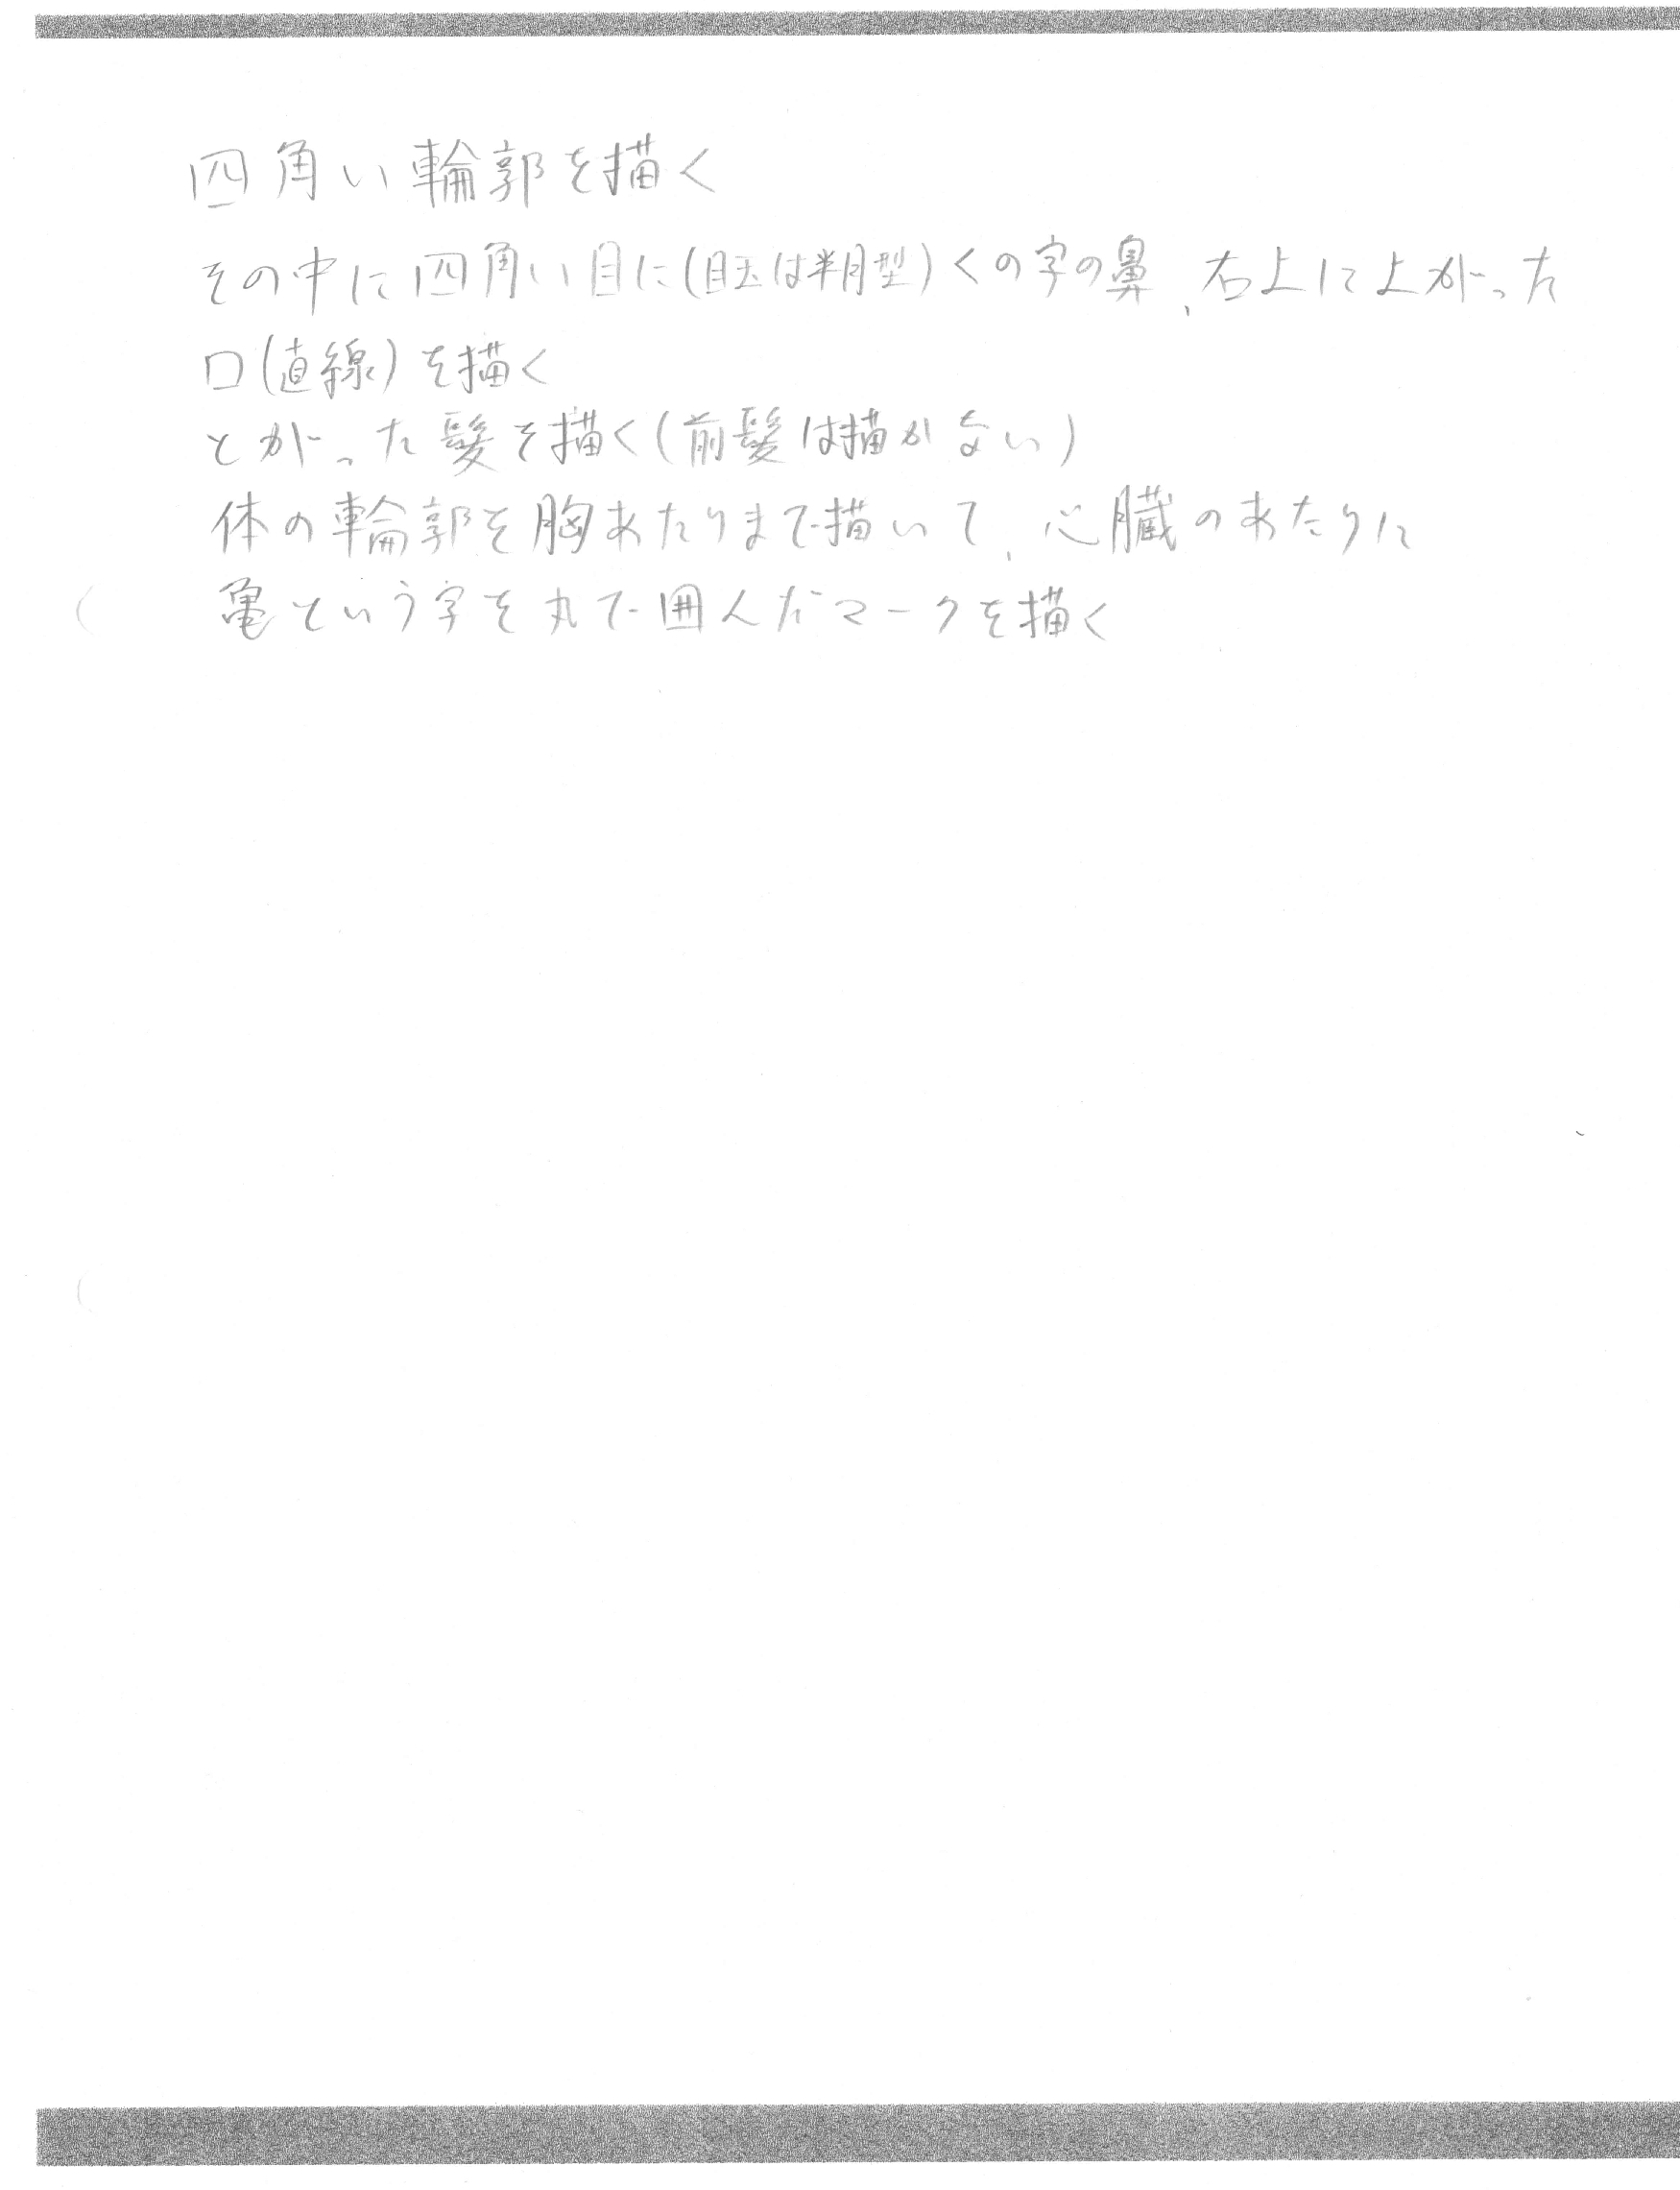 四角い輪郭を描く
その中に四角い目に(目玉は半月型)くの字の鼻、右上に上がった
口(直線)を描く
とがった髪を描く(前髪は描かない)
体の輪郭を胸あたりまで描いて、心臓のあたりに
亀という字を丸で囲んだマークを描く